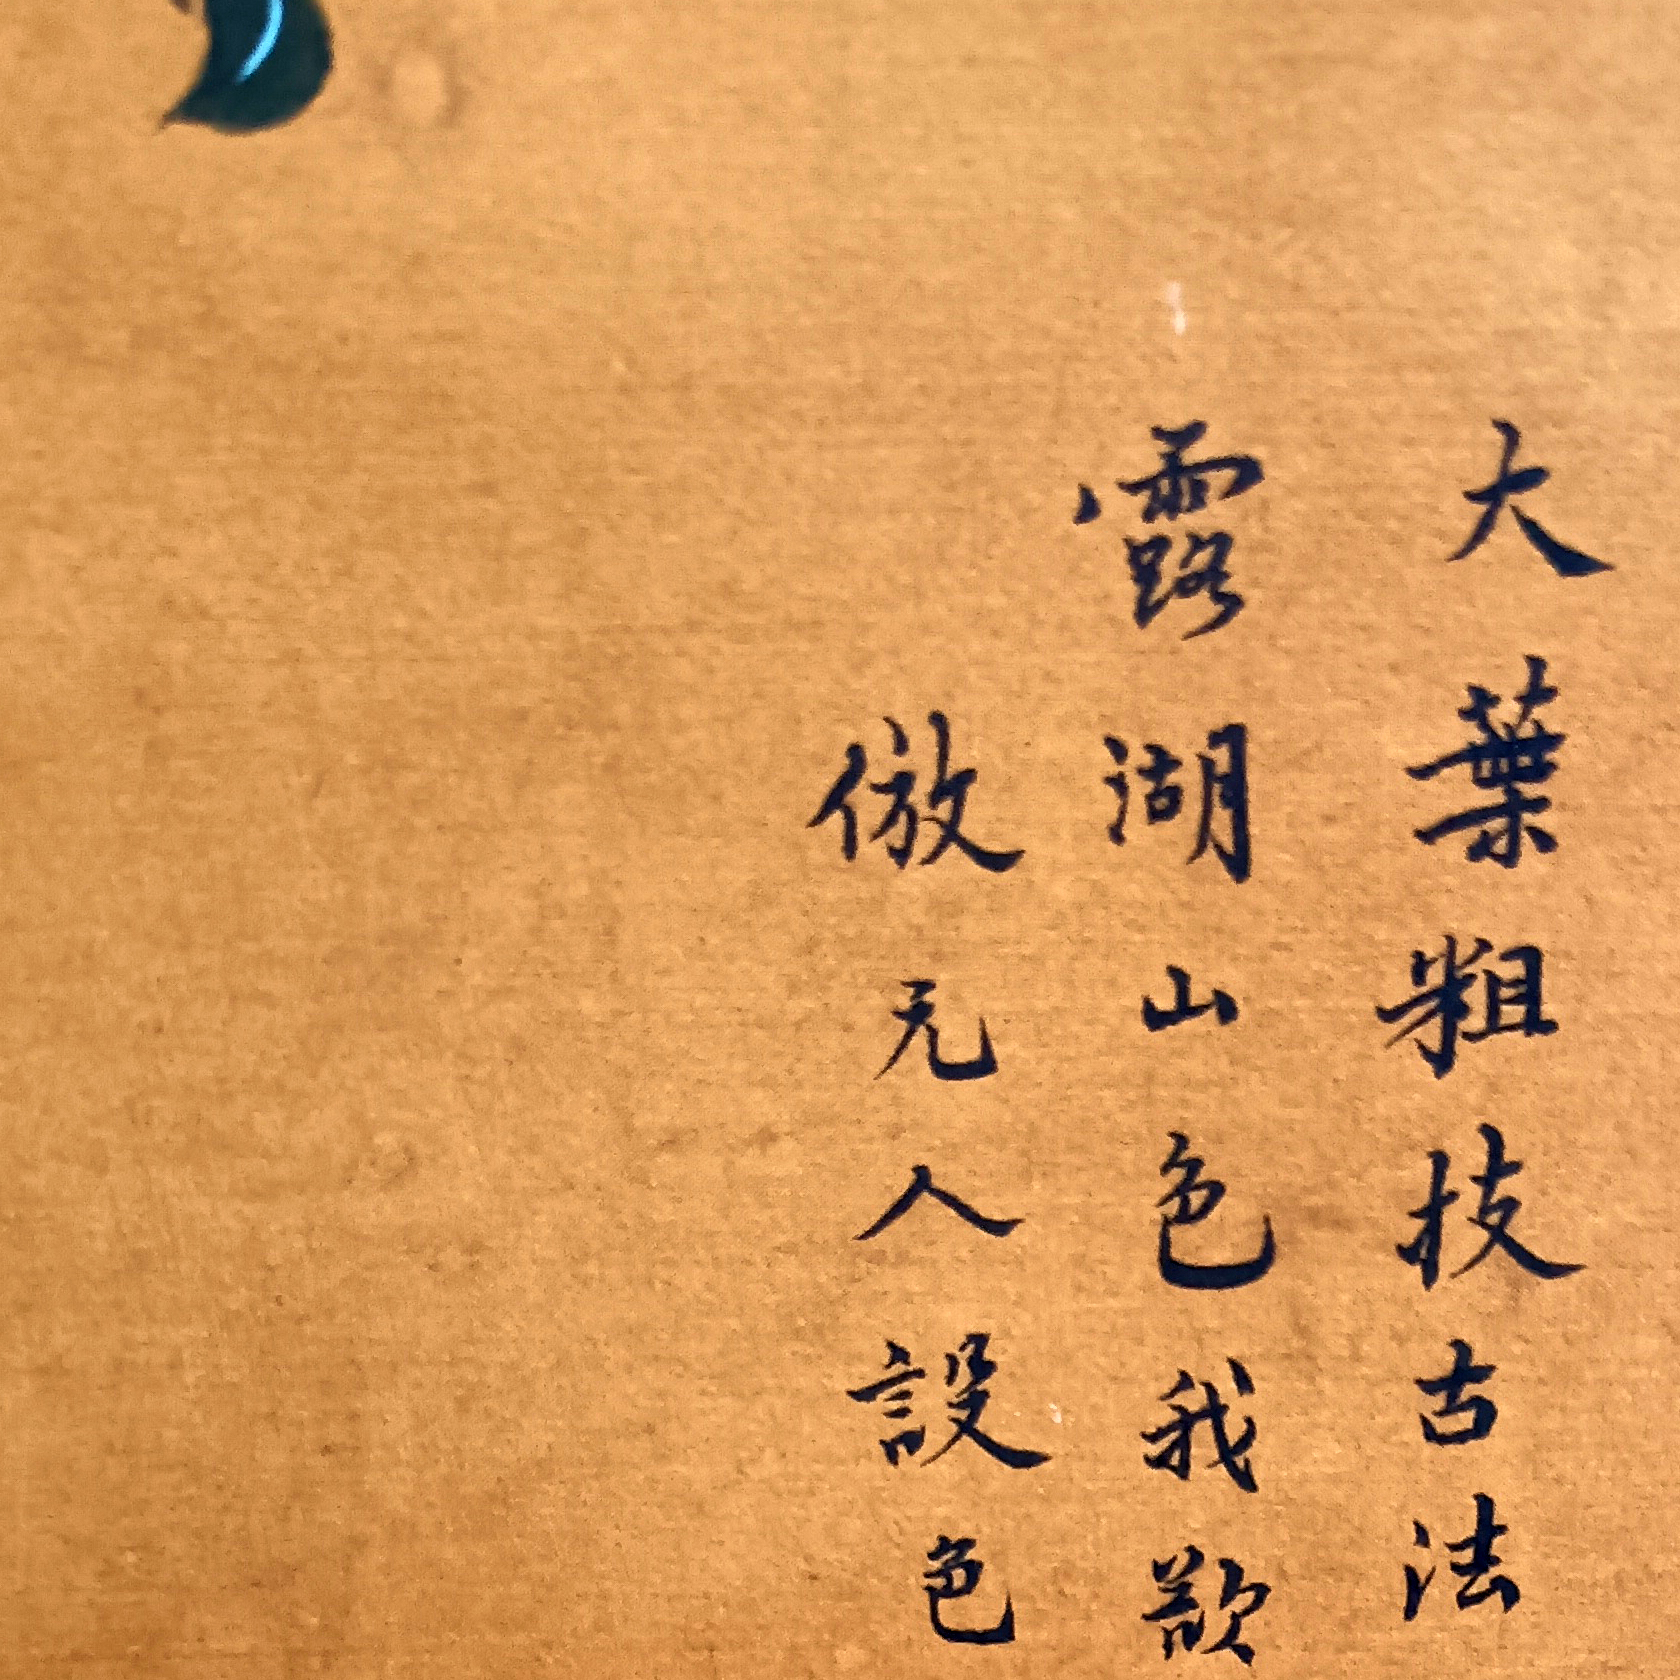 大葉粗枝古法
露湖山色我歆
倣元人設色